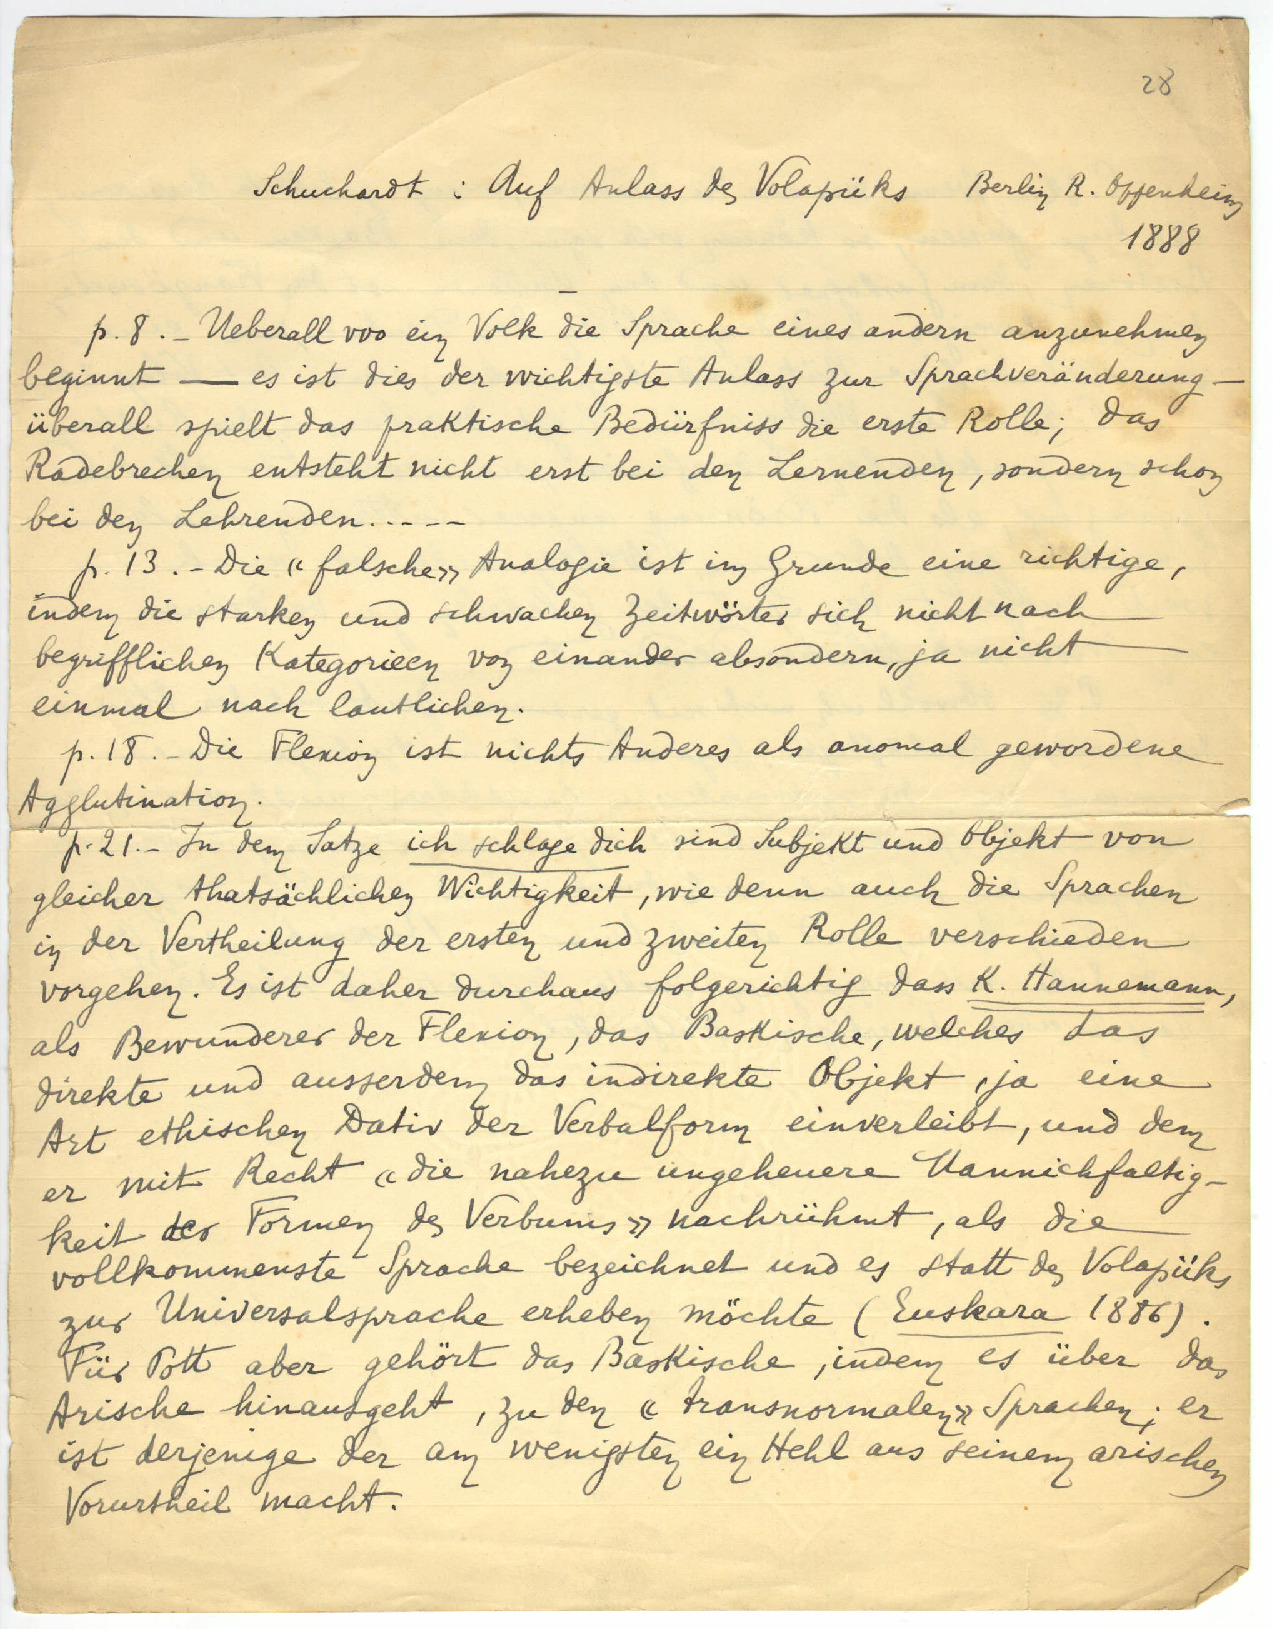 28
Schuchardt : Auf Anlass des Volapüks Berlin R. Oppenheim
1888
p. 8. – Ueberall wo ein Volk die Sprache eines andern anzunehmen
beginnt — es ist dies der wichtigste Anlass zur Sprachveränderung –
überall spielt das praktische Bedürfniss die erste Rolle; das
Radebrechen entsteht nicht erst bei den Lernenden, sondern schon
bei den Lehrenden.....
p. 13. – Die «falsche» Analogie ist im Grunde eine richtige,
indem die starken und schwachen Zeitwörter sich nicht nach
begrifflichen Kategorieen von einander absondern, ja nicht
einmal nach lautlichen.
p. 18. – Die Flexion ist nichts Anderes als anomal gewordene
Agglutination.
p. 21. – In dem Satze ich schlage dich sind Subjekt und Objekt von
gleicher thatsächlichen Wichtigkeit, wie denn auch die Sprachen
in der Vertheilung der ersten und zweiten Rolle verschieden
vorgehen. Es ist daher durchaus folgerichtig dass K. Hannemann,
als Bewunderer der Flexion, das Baskische, welches das
direkte und ausserdem das indirekte Objekt, ja eine
Art ethischen Dativ der Verbalform einverleibt, und dem
er mit Recht «die nahezu ungeheuere Mannichfaltig-
keit der Formen des Verbums» nachrühmt, als die
vollkommenste Sprache bezeichnet und es statt des Volapüks
zur Universalsprache erheben möchte (Euskara 1886).
Für Pott aber gehört das Baskische, indem es über das
Arische hinausgeht, zu den «transnormalen» Sprachen; er
ist derjenige der am wenigsten ein Hehl aus seinem arischen
Vorurtheil macht.